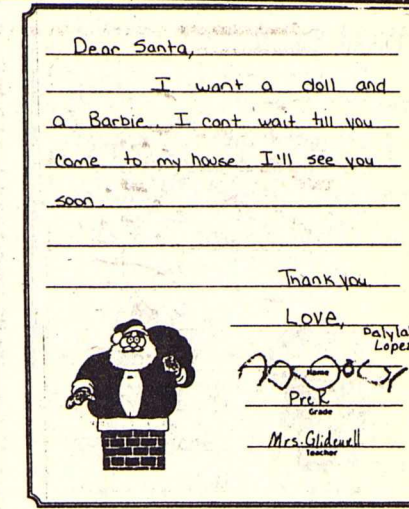 Dear Santa,
I want a doll and
a Barbie. I cant wait till you
come to my house. I'll see you
soon.
Thank you
Love,
Dalyla
Lopez
Name
Pre K
Grade
Mrs. Glidewell
Teacher